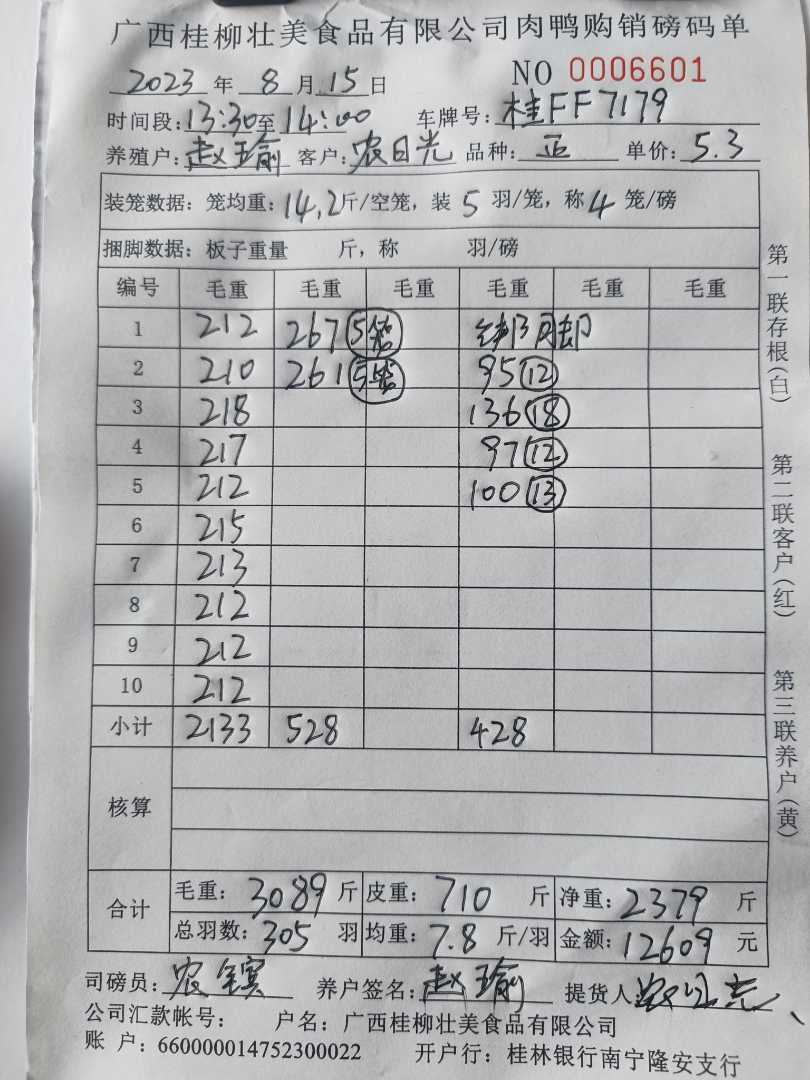 广西桂柳壮美食品有限公司肉鸭购销磅码单
2023 年 8 月 15 日 NO 0006601
时间段:13:30至14:00 车牌号:桂FF7179
养殖户:赵瑜 客户:农日光 品种:正 单价:5.3
装笼数据: 笼均重:14.2斤/空笼, 装 5 羽/笼, 称 4 笼/磅
捆脚数据: 板子重量 斤, 称 羽/磅
编号 毛重 毛重 毛重 毛重 毛重 毛重
1 212 267 5笼 绑脚
2 210 261 5笼 95 12
3 218 136 18
4 217 97 12
5 212 100 13
6 215
7 213
8 212
9 212
10 212
小计 2133 528 428
核算
合计 毛重: 3089 斤 皮重: 710 斤 净重: 2379 斤
总羽数: 305 羽 均重: 7.8 斤/羽 金额: 12609 元
司磅员: 农 养户签名: 赵瑜 提货人
公司汇款帐号: 户名: 广西桂柳壮美食品有限公司
账 户: 660000014752300022 开户行: 桂林银行南宁隆安支行
第一联存根(白)
第二联客户(红)
第三联养户(黄)